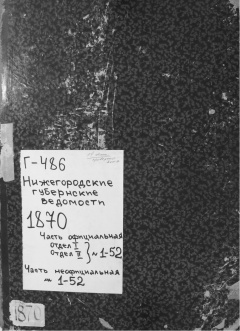 Г-486
Нижегородские
губернские
ведомости
1870
Часть официальная
отдел I
отдел II } № 1-52
Часть неофициальная
№ 1-52
1870